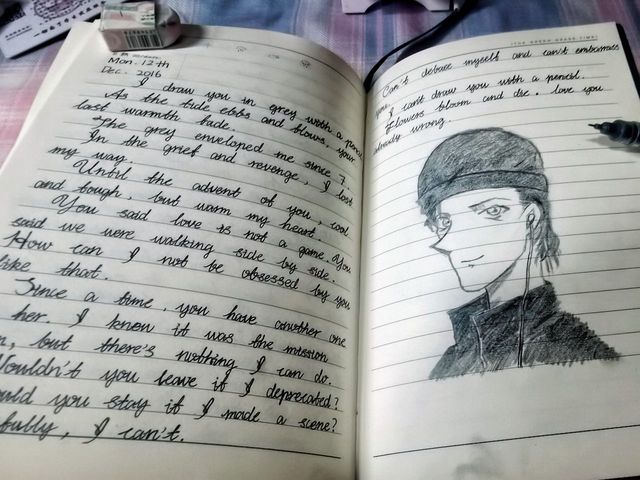 Mon. 12th
Dec. 2016
I draw you in grey with a penc
As the tide ebbs and blows, your
last warmth fade.
The grey enveloped me since 7.
In the grief and revenge, I lost
my way.
Until the advent of you, cool
and tough, but warm my heart.
You said love is not a game. You
said we were walking side by side.
How can I not be obsessed by you
like that.
Since a time, you have another one
her. I know it was the mission
n, but there's nothing I can do.
Wouldn't you leave if I deprecated?
ould you stay if I made a scene?
fully, I can't.
Can't debase myself and can't embarrass
you.
I can't draw you with a pencil.
Flowers bloom and die. love you
already wrong.